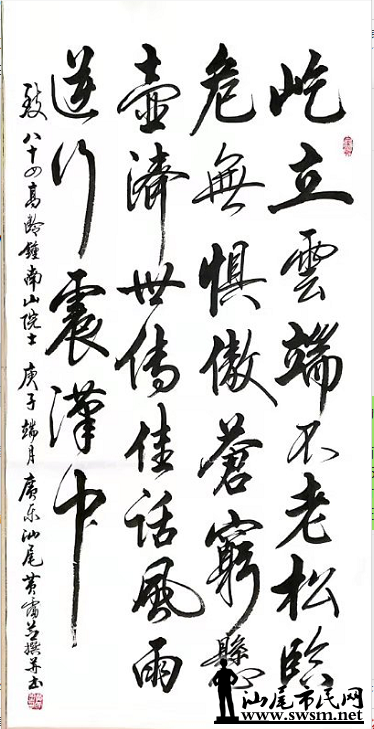 屹立雲端不老松臨
危無懼傲蒼窮懸
壺濟世傳佳話風雨
逆行震漢中
致八十四高齡鍾南山院士 庚子端月廣东汕尾黄撰并书
汕尾市民网
www.swsm.net